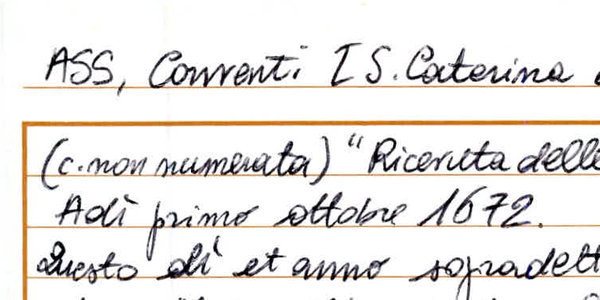 ASS, Conventi I S. Caterina
(c. non numerata) "Riceruta delle
Adì primo ottobre 1672.
Questo dì et anno sopradett